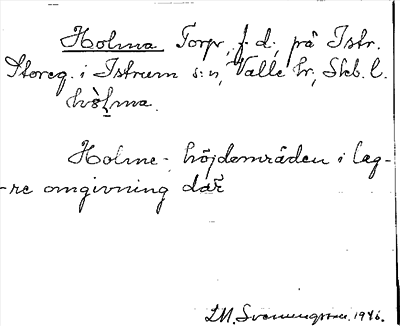 Holma Torp, f. d., på Istr.
Storeg. i Istrum s:n, Valle hr, Skb. l.
hòlma.
Holme - höjdområden i läg-
-re omgivning där
I.M. Svenungsson. 1946.